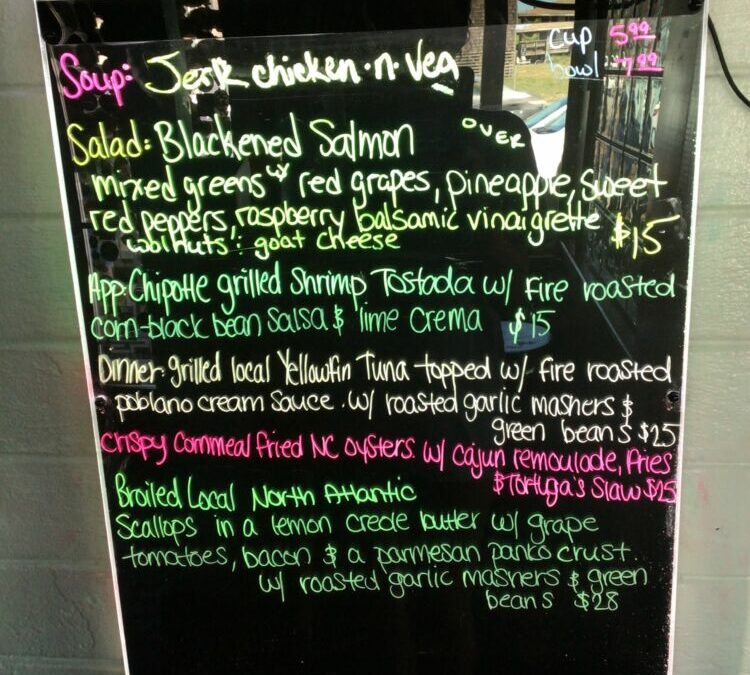 Soup: Jerk chicken ·n· Veg
cup 5.99
bowl 7.99
Salad: Blackened Salmon OVER
mixed greens w/ red grapes, pineapple, sweet
red peppers, raspberry balsamic vinaigrette $15
walnuts & goat cheese
App: Chipotle grilled Shrimp Tostada w/ fire roasted
corn-black bean Salsa & lime Crema $15
Dinner: grilled local Yellowfin Tuna topped w/ fire roasted
poblano cream sauce. w/ roasted garlic mashers &
green beans $25
Crispy Cornmeal fried NC oysters. w/ cajun remoulade, fries
& Tortuga's Slaw $25
Broiled Local North Atlantic
Scallops in a lemon creole butter w/ grape
tomatoes, bacon & a parmesan panko crust.
w/ roasted garlic mashers & green
beans $28